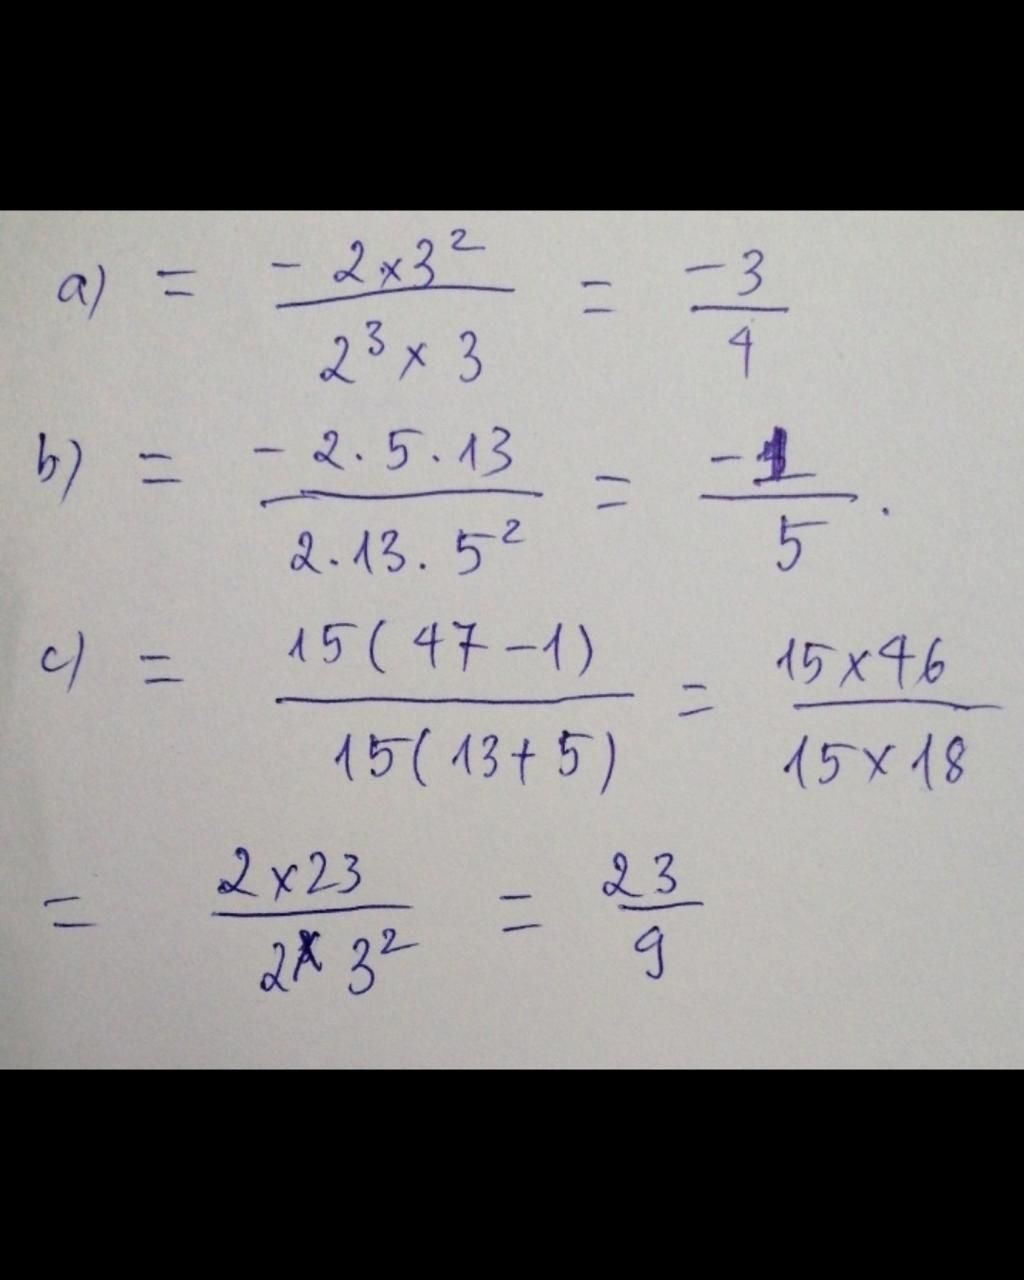 a) = - 2×3² / 2³ × 3 = -3 / 4
b) = - 2.5.13 / 2.13.5² = -1 / 5.
c) = 15(47-1) / 15(13+5) = 15×46 / 15×18
= 2×23 / 2× 3² = 23 / 9